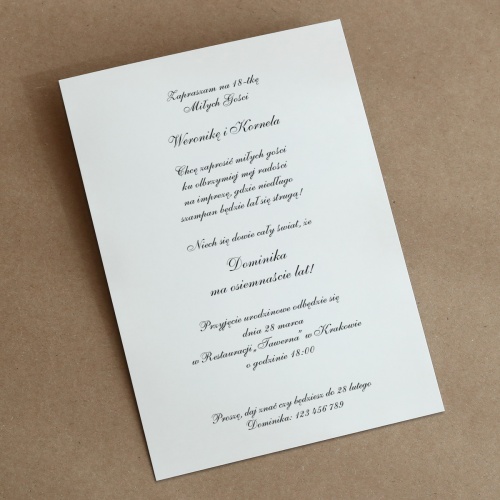 Zapraszam na 18-tkę
Miłych Gości
Weronikę i Kornela
Chcę zaprosić miłych gości
ku olbrzymiej mej radości
na imprezę, gdzie niedługo
szampan będzie lał się strugą!
Niech się dowie cały świat, że
Dominika
ma osiemnaście lat!
Przyjęcie urodzinowe odbędzie się
dnia 28 marca
w Restauracji „Tawerna" w Krakowie
o godzinie 18:00
Proszę, daj znać czy będziesz do 28 lutego
Dominika: 123 456 789